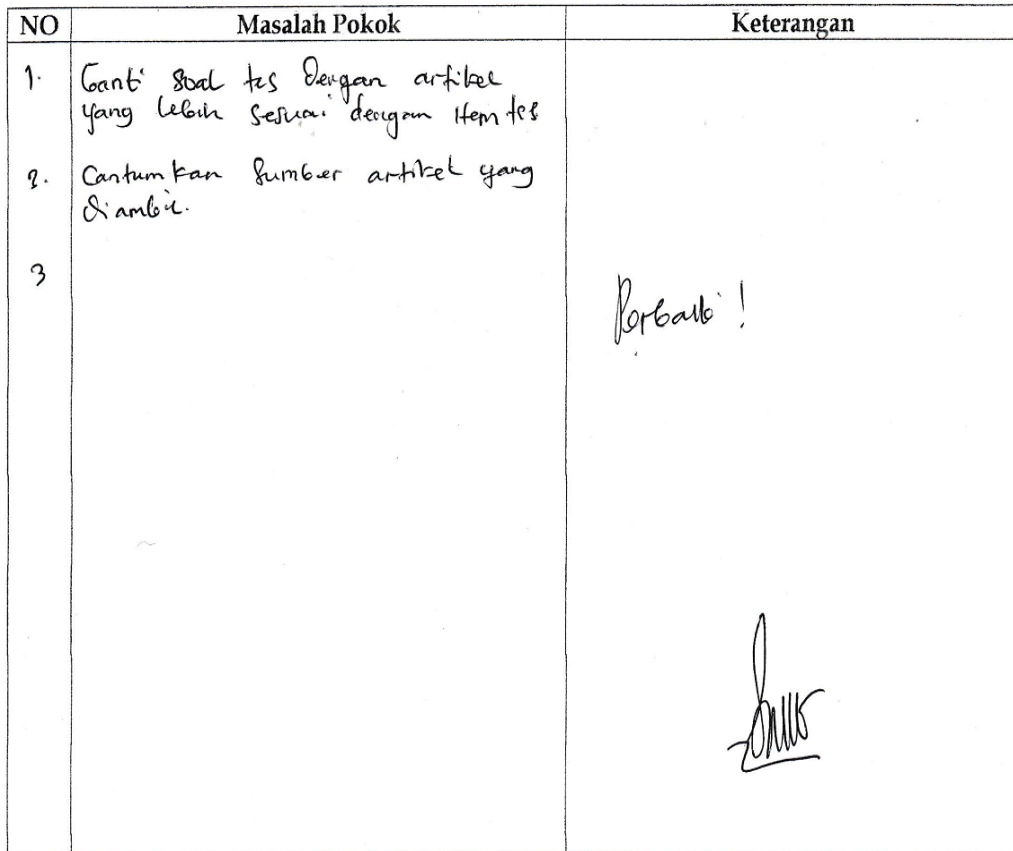 NO Masalah Pokok Keterangan
1. Ganti soal tes dengan artikel
yang lebih sesuai dengan item tes
2. Cantumkan sumber artikel yang
diambil.
3
Perbaiki !